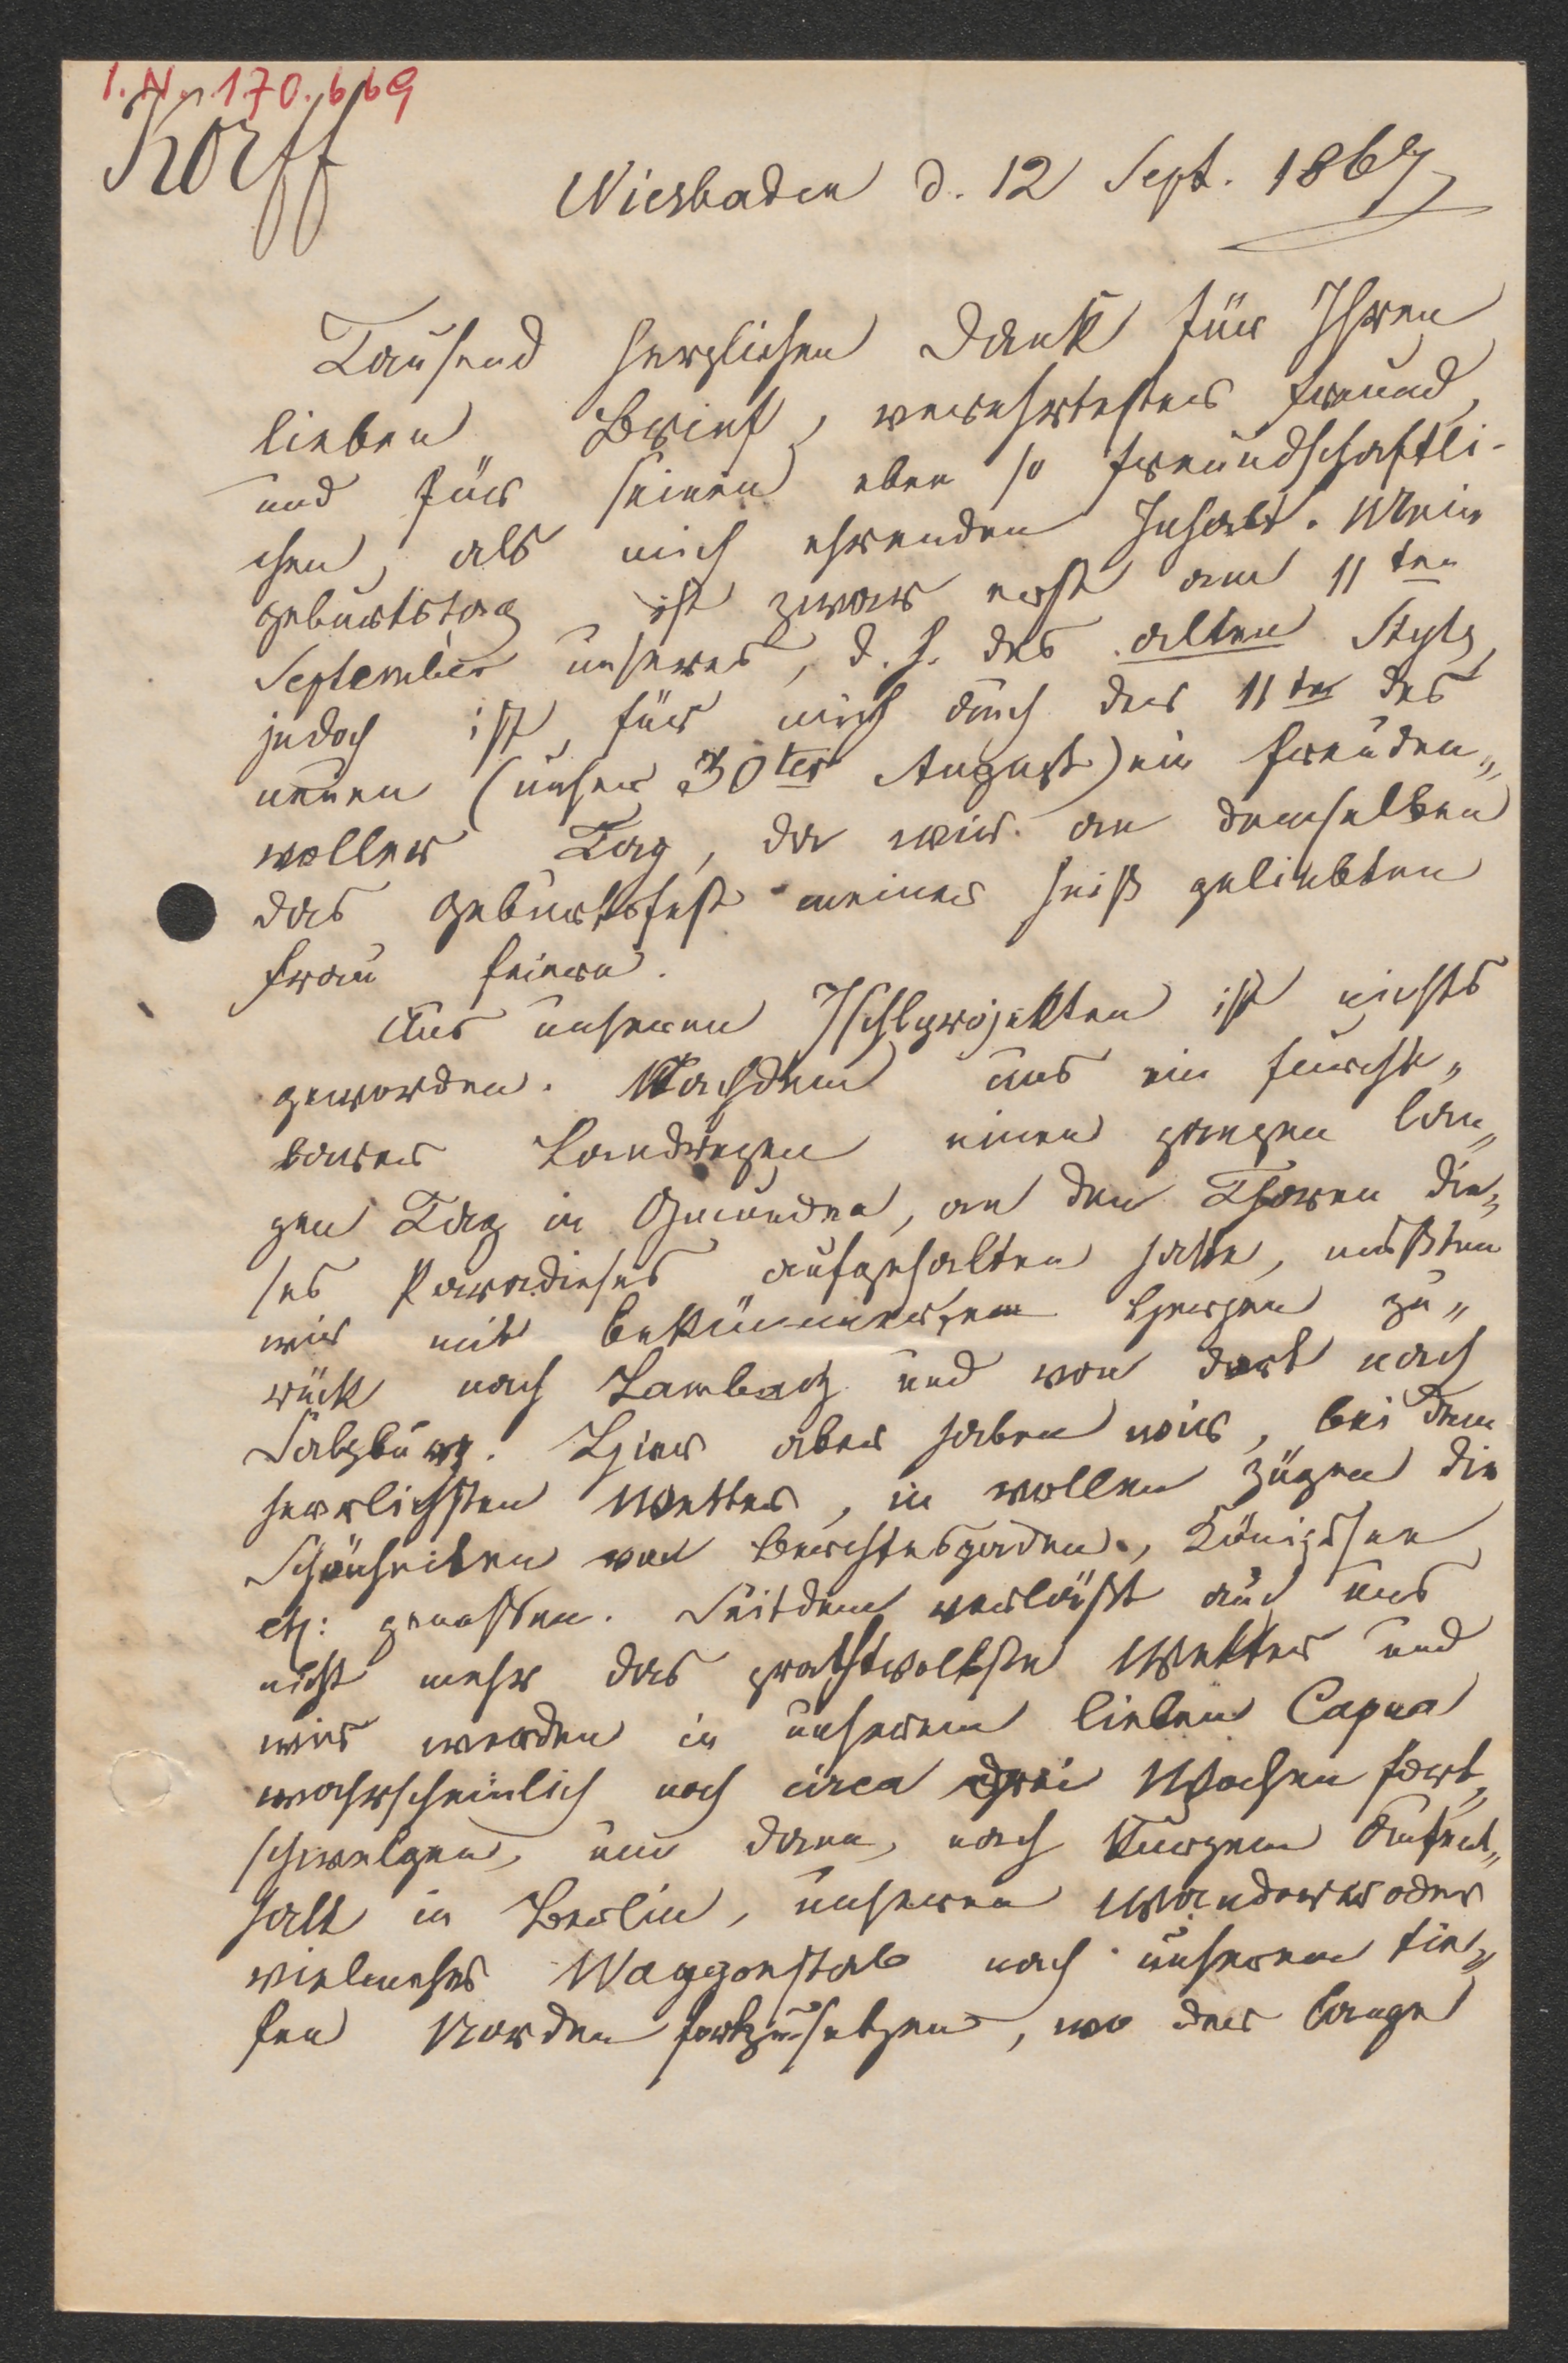 I.N. 170.669
Korff
Wiesbaden d. 12 Sept. 1867
Tausend herzlichen Dank für Ihren
lieben Brief, verehrtester Freund,
und für seinen eben so freundschaftli-
chen, als mich ehrenden Inhalt. Mein
Geburtstag ist zwar erst am 11ten
September unseres, d. h. des alten Styls,
jedoch ist, für mich auch der 11te des
neuen (unser 30ter August) ein freuden„
voller Tag, da wir an demselben
das Geburtsfest meiner heiß geliebten
Frau feiern.
Aus unseren Ischlprojekten ist nichts
geworden. Nachdem uns ein furcht„
barer Landregen einen ganzen lan„
gen Tag in Gmunden, an den Thoren die„
ses Paradieses aufgehalten hatte, mußten
wir mit bekümmertem Herzen zu„
rück nach Lambach und von dort nach
Salzburg. Hier aber haben wir, bei dem
herrlichsten Wetter, in vollen Zügen die
Schönheiten von Berchtesgaden, Königssee
etz: genossen. Seitdem verläßt auch uns
nicht mehr das prachtvollste Wetter und
wir werden in unserem lieben Capua
wahrscheinlich noch circa drei Wochen fort„
schwelgen, um dann, nach kurzem Aufent„
halt in Berlin, unseren Wander- oder
vielmehr Waggonstab nach unserem tie„
fen Norden fortzusetzen, wo der lange